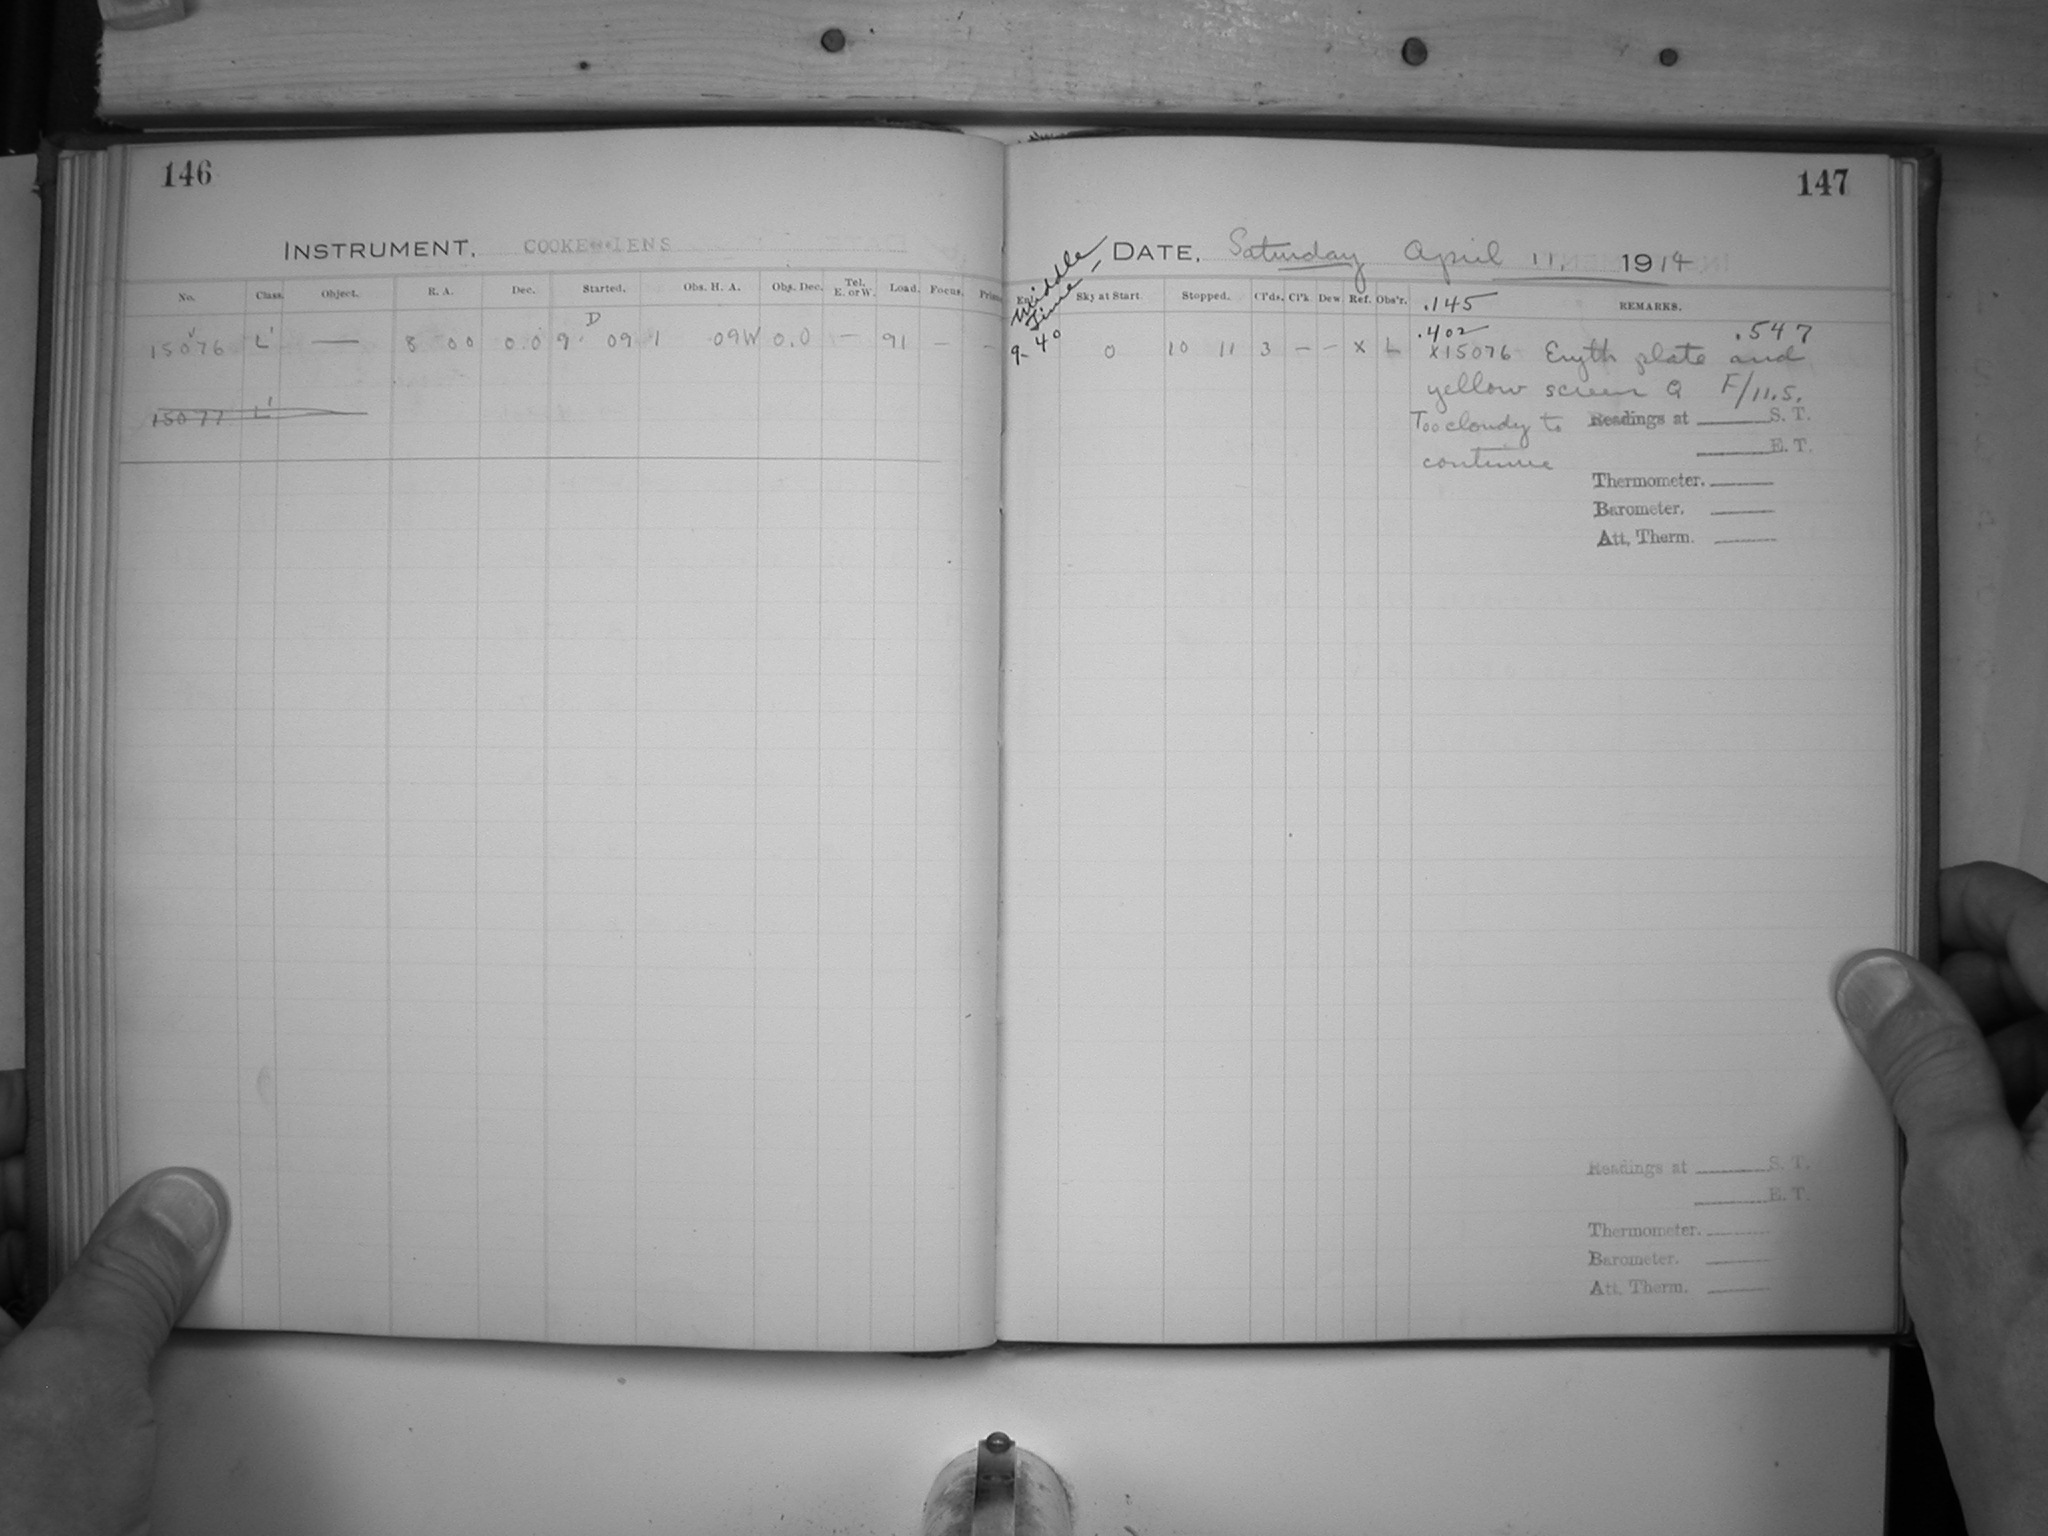 146
INSTRUMENT. COOKE LENS
No. Class. Object. R. A. Dec. Started. Obs. H. A. Obs. Dec. Tel. E. or W. Load. Focus.
15076 L' — 8 00 0.0 9 D 09 1 09W 0.0 — 91 — —
15077 L'
147
Middle Time
DATE. Saturday April 11, 1914
Sky at Start. Stopped. Cl'ds. Cl'k Dew Ref. Obs'r. .145 REMARKS.
.402 .547
9-40 0 10 11 3 — — X L X15076 Eryth plate and
yellow screen Q F/11.5.
Too cloudy to Readings at ______ S. T.
______ E. T.
continue
Thermometer. ______
Barometer. ______
Att. Therm. ______
Readings at ______ S. T.
______ E. T.
Thermometer. ______
Barometer. ______
Att. Therm. ______